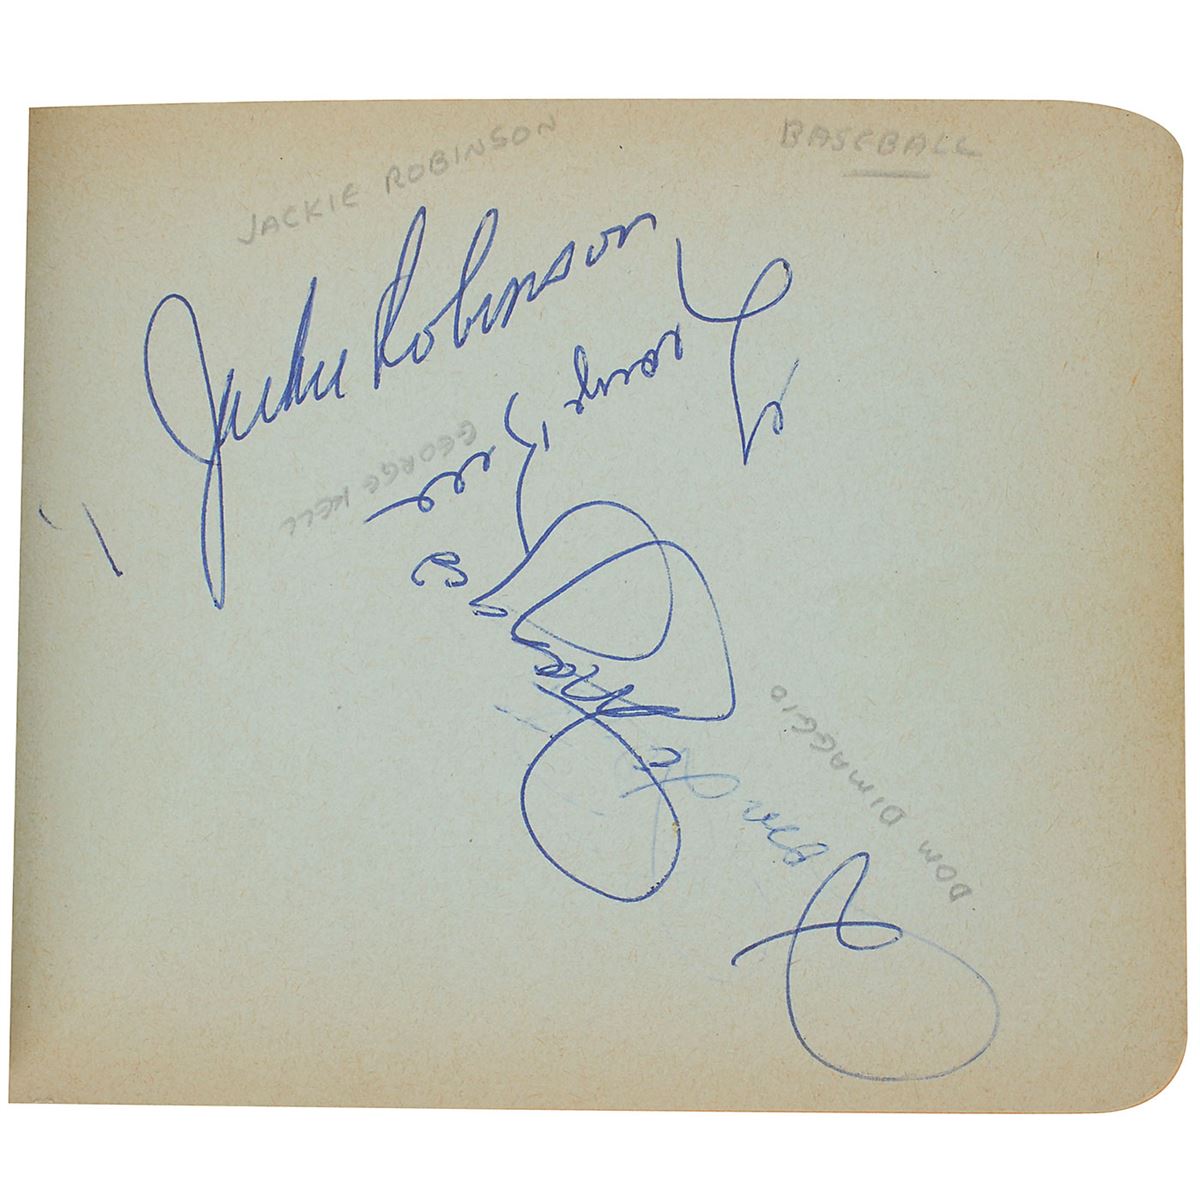 JACKIE ROBINSON
BASEBALL
Jackie Robinson
GEORGE KELL
George Kell
DOM DIMAGGIO
Dom DiMaggio